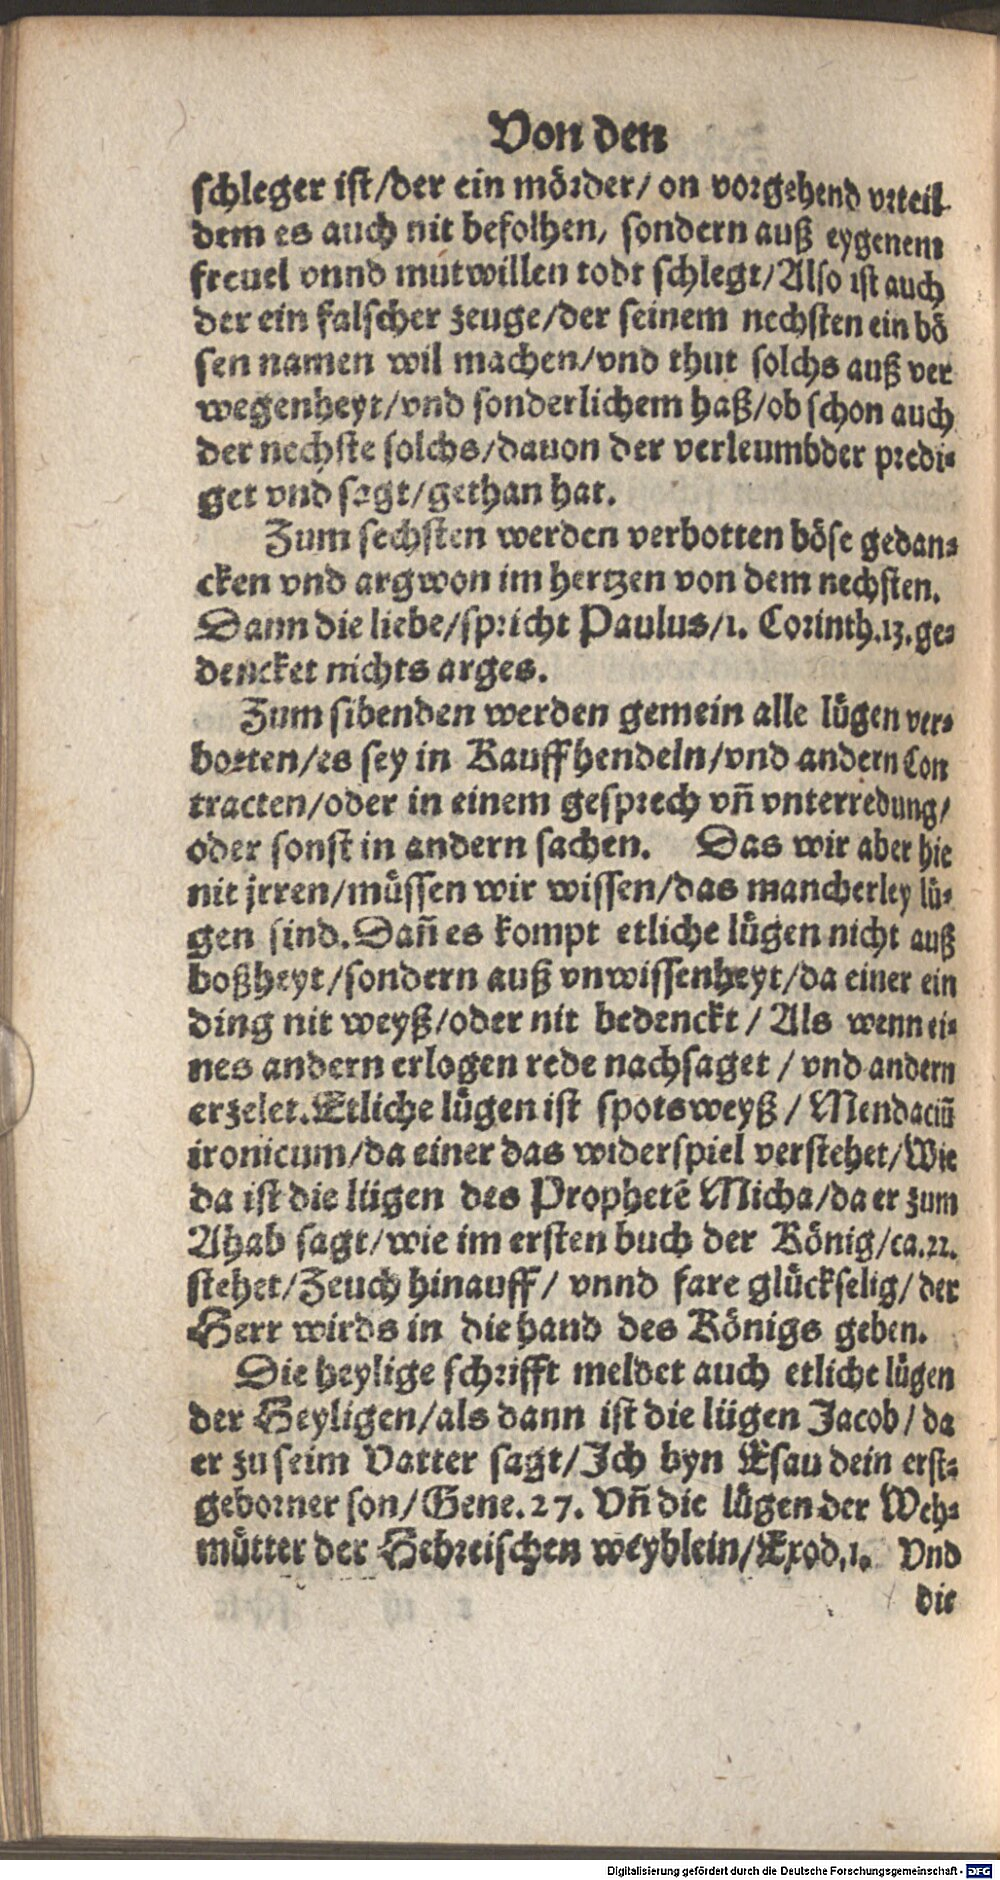 Von den
schleger ist/der ein mörder/ on vorgehend vrteil
dem es auch nit befolhen, sondern auß eygenem
freuel vnnd mutwillen todt schlegt/Also ist auch
der ein falscher zeuge/der seinem nechsten ein bö
sen namen wil machen/vnd thut solchs auß ver
wegenheyt/vnd sonderlichem haß/ob schon auch
der nechste solchs/dauon der verleumbder predi-
get vnd sagt/gethan hat.
Zum sechsten werden verbotten böse gedan-
cken vnd argwon im hertzen von dem nechsten.
Dann die liebe/spricht Paulus/1. Corinth.13.ge-
dencket nichts arges.
Zum sibenden werden gemein alle lügen ver-
botten/es sey in Kauffhendeln/vnd andern Con
tracten/oder in einem gesprech vñ vnterredung/
oder sonst in andern sachen. Das wir aber hie
nit jrren/müssen wir wissen/das mancherley lü-
gen sind. Dañ es kompt etliche lügen nicht auß
boßheyt/sondern auß vnwissenheyt/da einer ein
ding nit weyß/oder nit bedenckt / Als wenn ei-
nes andern erlogen rede nachsaget / vnd andern
erzelet. Etliche lügen ist spotsweyß / Mendaciū
ironicum/da einer das widerspiel verstehet/Wie
da ist die lügen des Prophetē Micha/da er zum
Ahab sagt/wie im ersten buch der König/ca.22.
stehet/Zeuch hinauff/ vnnd fare glückselig/ der
Herr wirds in die hand des Königs geben.
Die heylige schrifft meldet auch etliche lügen
der Heyligen/als dann ist die lügen Jacob/ da
er zu seim Vatter sagt/Ich byn Esau dein erst-
geborner son/Gene.27. Vñ die lügen der Weh-
mütter der Hebreischen weyblein/Exod.1. Vnd
die
Digitalisierung gefördert durch die Deutsche Forschungsgemeinschaft - DFG